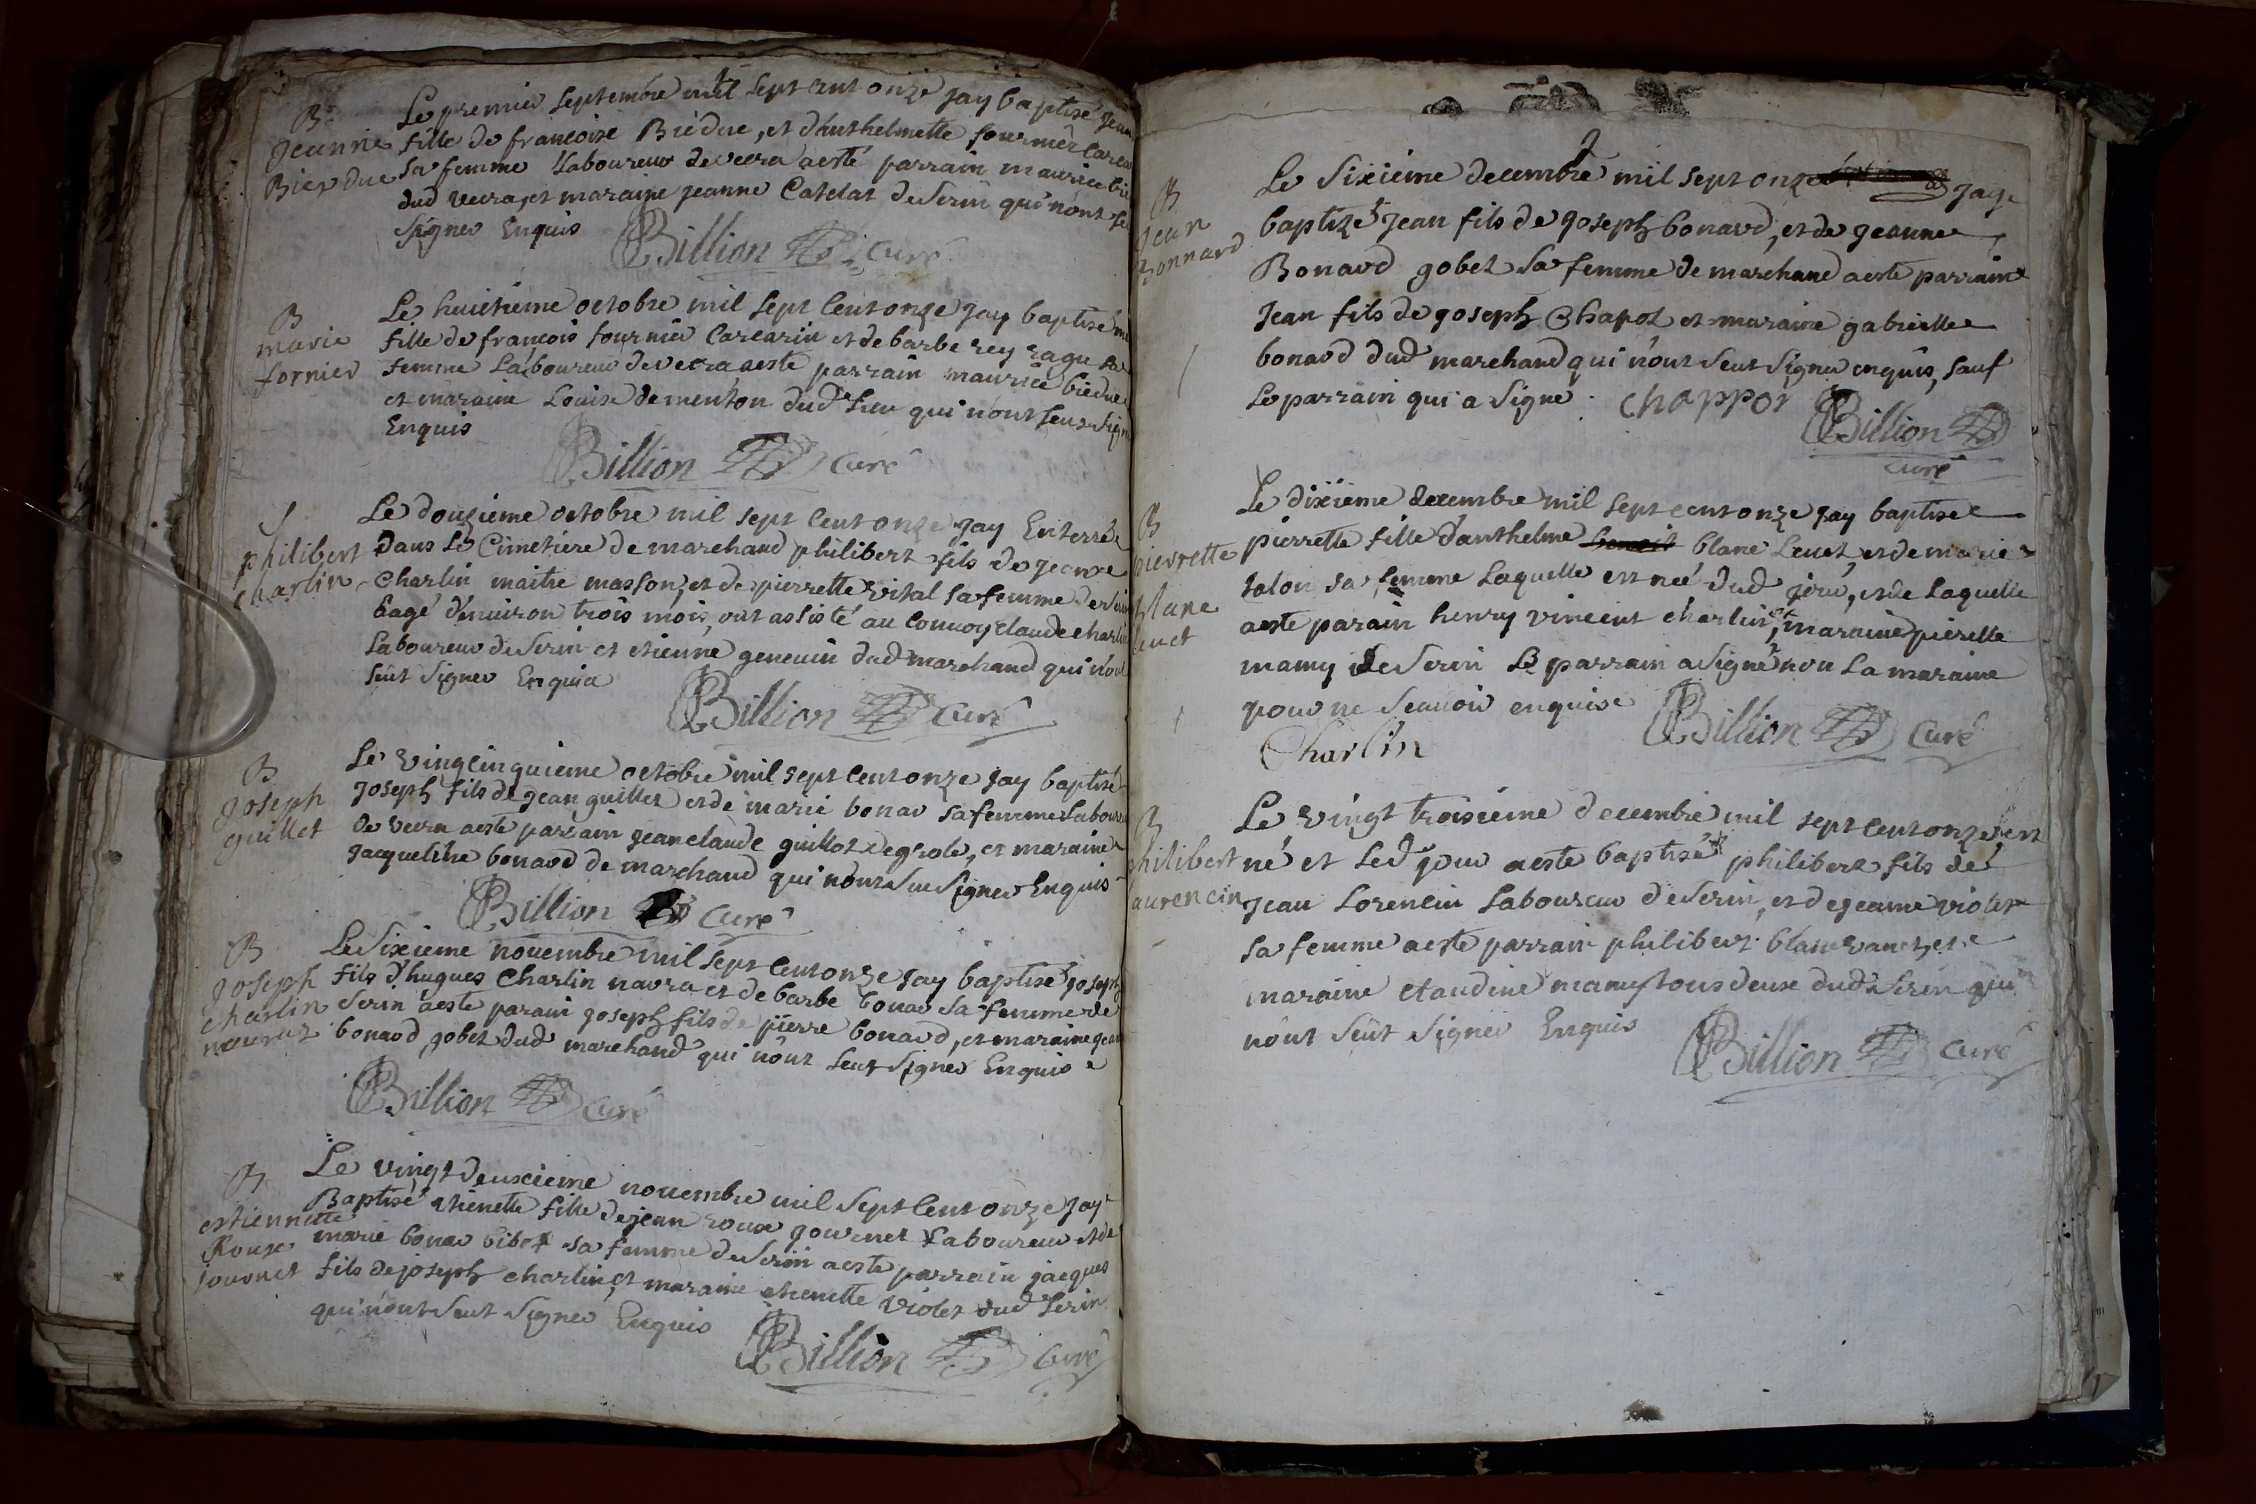 B
Jeanne
Bieydue
Le premier septembre mil sept cent onze Jay baptisé
fille de francoise Biedue, et d'anthelmette fournier
sa femme Laboureur de veera aesté parrain maurice
dud veera, et maraine jeanne Catelat de Serin qui n'ont
signer Enquis
Billion Curé
B
marie
fornier
Le huictieme octobre mil sept Cent onze Jay baptisé
fille de francois fournier Carcarin et de barbe rey sa
femme Laboureur de veera aesté parrain maurice biedue
et maraine Louise dementon dud Lieu qui n'ont seut
Enquis
Billion Curé
S
philibert
charlin
Le douzieme octobre mil sept Cent onze Jay Enterré
dans Le Cimetiere de marchand philibert fils de
Charlin maitre masson, et de pierrette vital sa femme
Eagé d'enuiron trois mois, ont assisté au Conuoy claude
Laboureur de Serin et etienne geneuin dud marchand qui
seut Signer Enquis
Billion Curé
B
joseph
guillet
Le vingcinquieme octobre mil sept Cent onze Jay baptisé
Joseph fils de Jean guillet et de marie bonar sa femme
de veera aesté parrain jeanclaude guillot degrole, et maraine
Jacqueline bonard de marchand qui n'ont seu signer Enquis
Billion Curé
B
joseph
charlin
Le Sixieme nouembre mil sept Cent onze Jay baptisé joseph
fils d'hugues Charlin navra et de barbe bonar sa femme de
Serin aesté parain joseph fils de pierre bonard, et maraine
bonard gobet dud marchand qui n'ont seut signer Enquis
Billion Curé
B
estiennette
Roux
journet
Le vingt deuxcieme nouembre mil sept Cent onze Jay
Baptisé etienette fille de jean roux gournet Laboureur et de
marie bonar bibet sa femme de Serin aesté parrain jacques
fils de joseph charlin, et maraine etienette violet dud Serin
qui n'ont seut signer Enquis
Billion Curé
B
Jean
Bonnard
Le Sixiéme decembre mil sept onze Jay
baptizé Jean fils de Joseph bonard, et de jeanne
Bonard gobet sa femme de marchand aesté parrain
Jean fils de joseph Chapot et maraine gabrielle
bonard dud marchand qui n'ont seut signer enquis, sauf
Le parrain qui a signé. Chappot Billion
Curé
B
pierrette
blanc
leuet
Le dixiéme decembre mil sept cent onze Jay baptisé
pierrette fille d'anthelme blanc Leuet, et de marie
talon sa femme Laquelle est née dud jour, et de Laquelle
aesté parain henry vincent charlin, et maraine pierette
mamy de Serin Le parrain a signé non La maraine
pour ne scauoir enquise Billion Curé
Charlin
B
philibert
laurencin
Le vingt troisiéme decembre mil sept cent onze est
né et Led jour aesté baptisé philibert fils de
Jean Lorencin Laboureur de Serin, et de jeanne violet
sa femme aesté parrain philibert blanc et
maraine claudine mamy tous deux dud Serin qui
n'ont seut signer Enquis Billion Curé